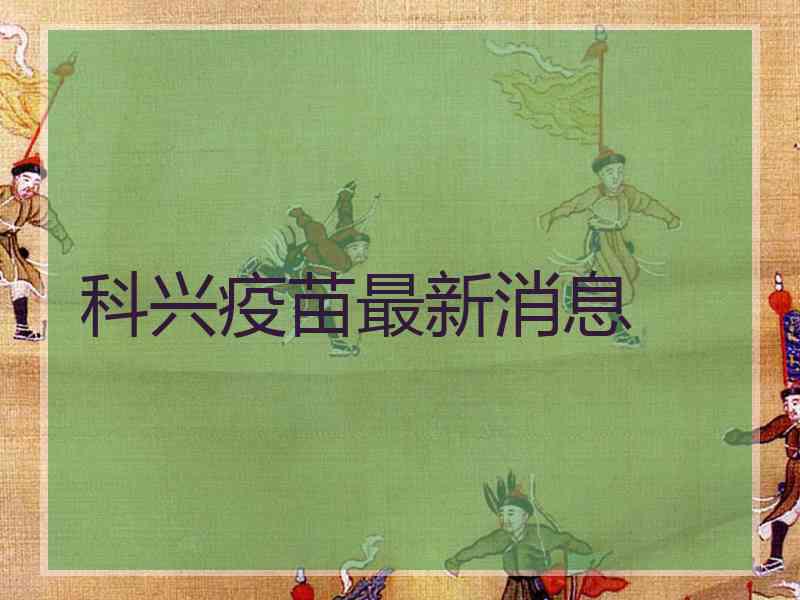 科兴疫苗最新消息